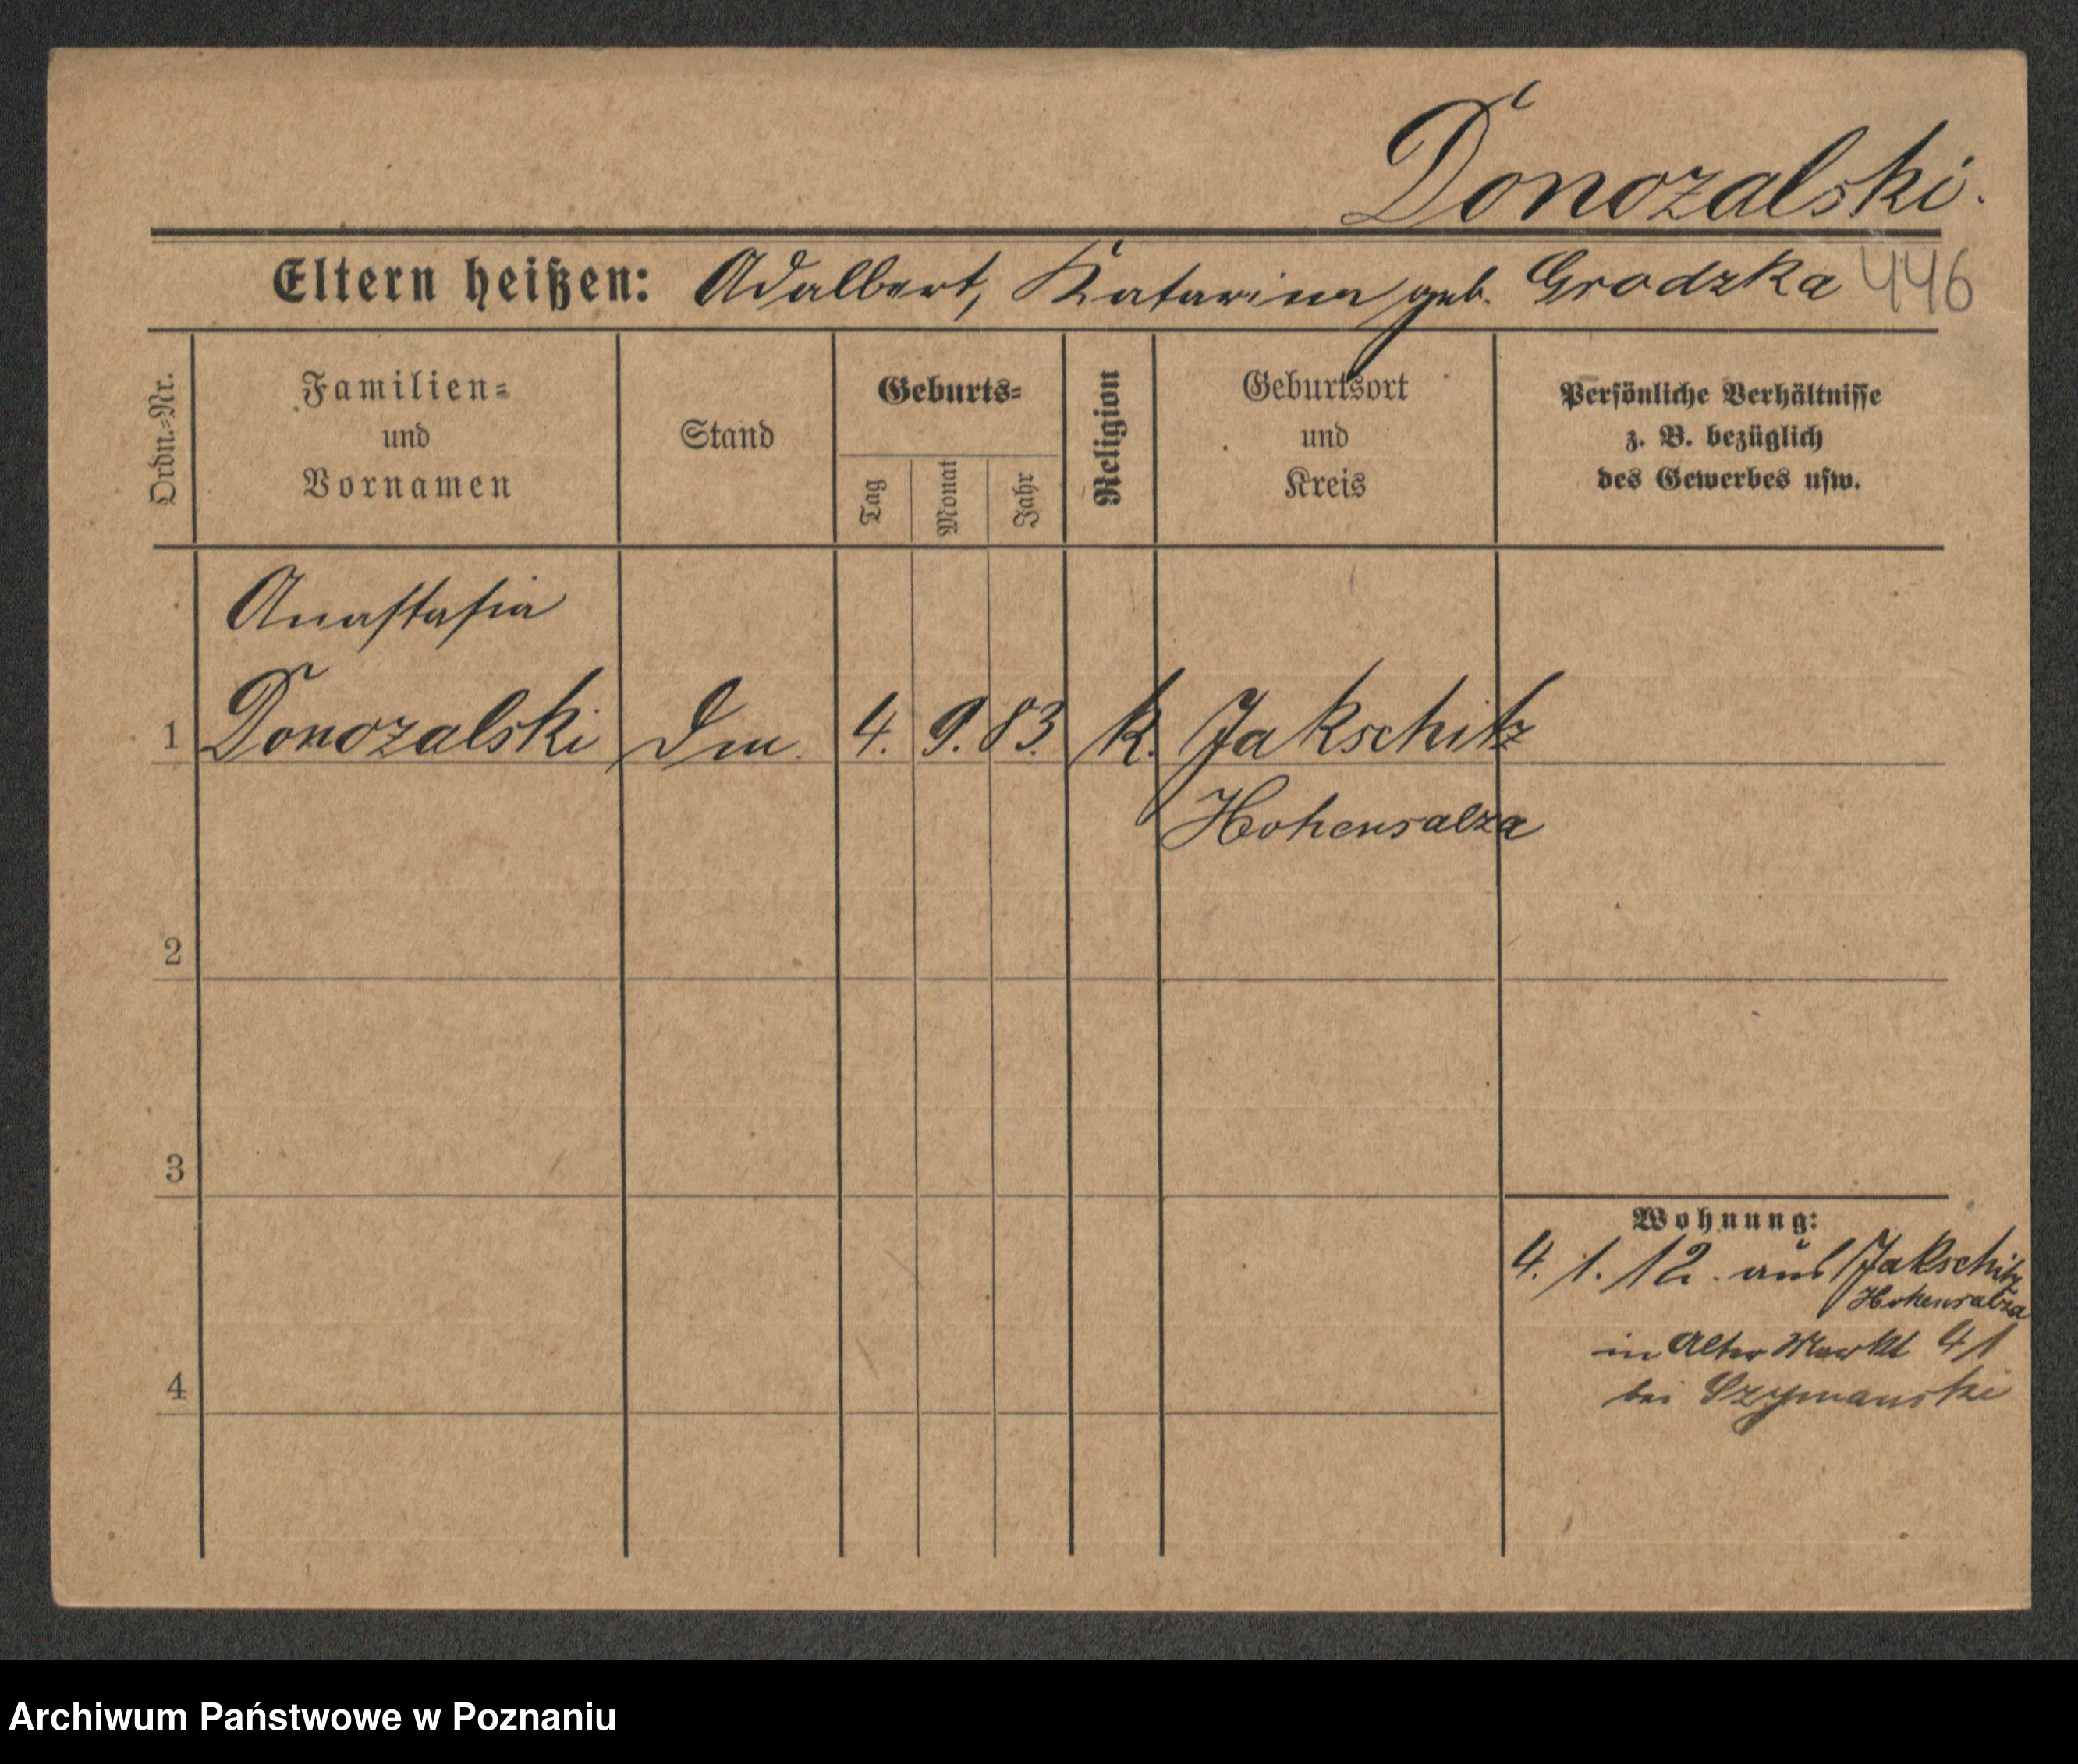 Donozalski.
Eltern heißen: Adalbert, Katarina geb. Grodzka 446
Ordn.=Nr.
Familien=
und
Vornamen
Stand
Geburts=
Tag
Monat
Jahr
Religion
Geburtsort
und
Kreis
Persönliche Verhältnisse
z. B. bezüglich
des Gewerbes usw.
Anastasia
1 Donozalski 4. 9. 83. k. Jakschitz
Hohensalza
2
3
Wohnung:
4. 1. 12. aus Jakschitz
Hohensalza
in Alter Markt 41
bei Szymanski
4
Archiwum Państwowe w Poznaniu